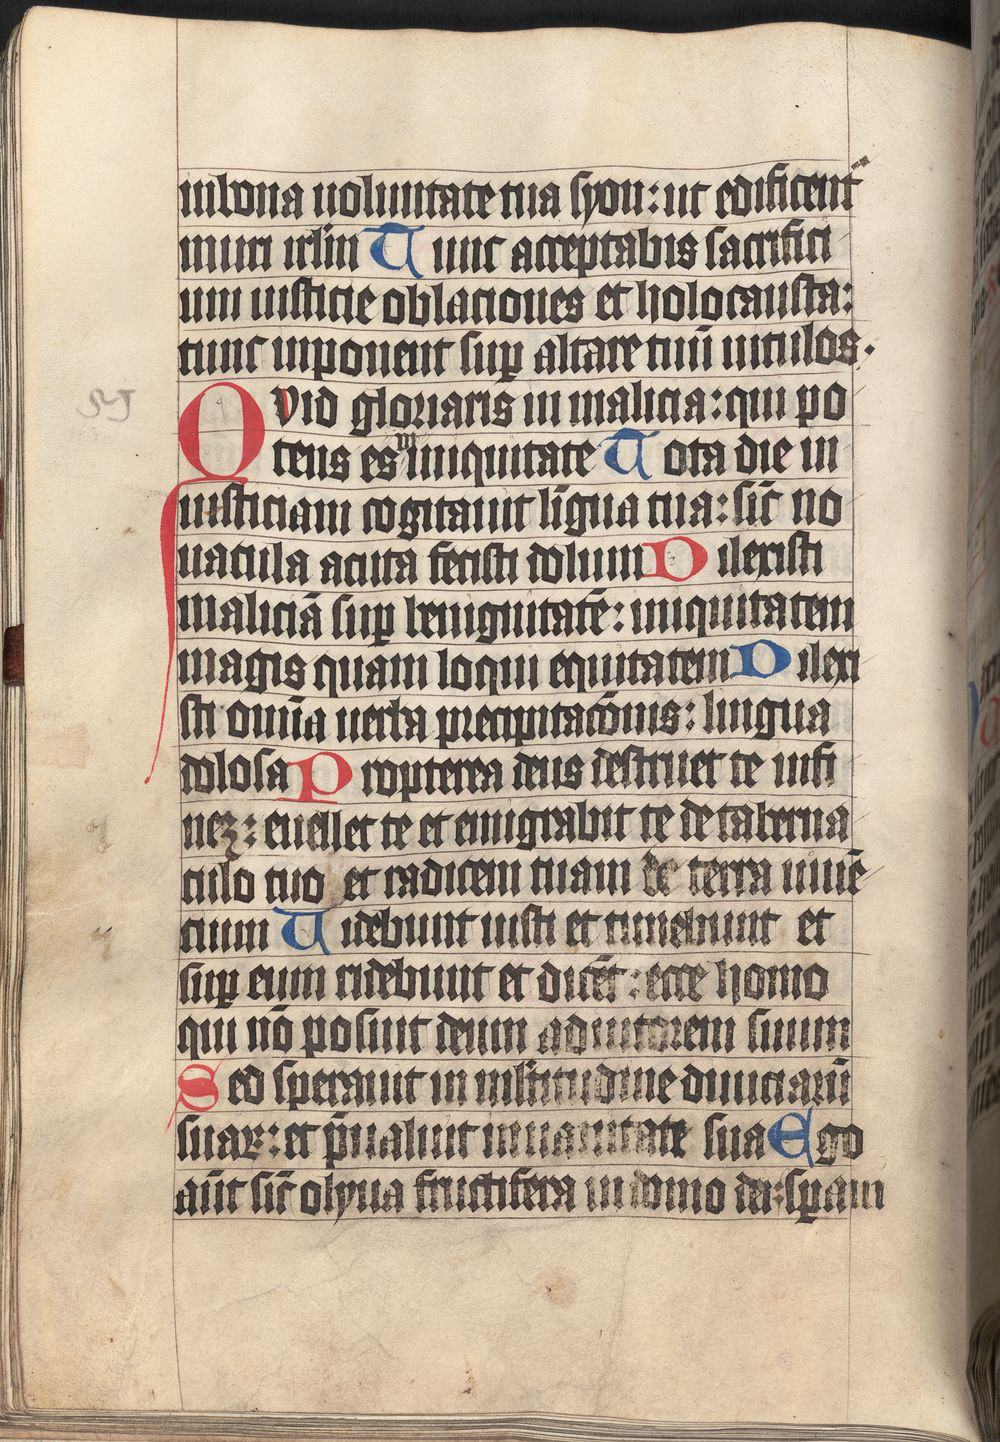 inbona uoluntate tua syon: ut edificent᷑
muri irl̅m Tunc acceptabis sacrifici
um iusticie oblaciones et holocausta:
tunc inponent sup̱ altare tuū uitulos.
51
QVid gloriaris in malicia: qui po
tens es in iniquitate Tota die in
iusticiam cogitauit lingua tua: sic̄ no
uacula acuta fecisti dolum Dilexisti
maliciā sup̱ benignitatē: iniquitatem
magis quam loqui equitatem Dilexi
sti omīa uerba precipitacōnis: lingua
dolosa Propterea deus destruet te infi
neꝫ: euellet te et emigrabit te de taberna
culo tuo et radicem tuam de terra uiuē
cium Uidebunt iusti et timebunt et
sup̱ eum ridebunt et dicēt: ecce homo
qui nō posuit deum adiutorem suum
Sed sperauit in multitudine diuiciarū
suaꝝ: et p̄ualuit in uanitate sua Ego
aūt sic̄ olyua fructifera in domo dei: sp̱aui